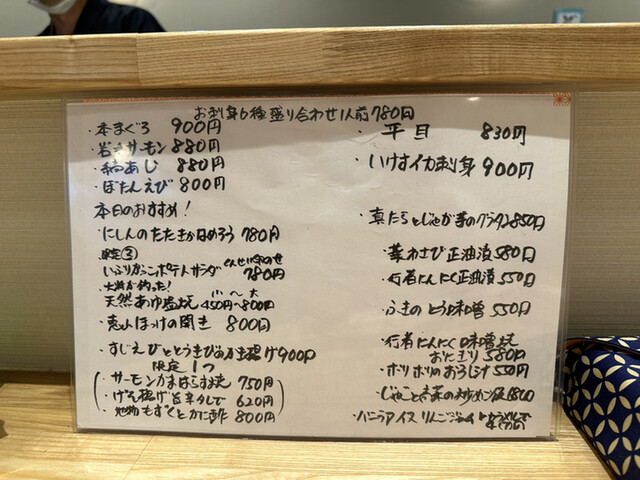 お刺身6種盛り合わせ1人前780円
・本まぐろ 900円
サーモン 880円
あじ 880円
・ぼたんえび 800円
本日のおすすめ!
・にしんのたたきかなめろう 780円
限定③
いぶりがっこポテトサラダ くんせい
780円
・大将が釣った!
天然あゆ塩焼 小〜大 450円〜800円
・恵山ほっけの開き 800円
・すじえびととうきびのかき揚げ900円
限定1つ
・サーモンかまはらす焼 750円
・げそ揚げ旨辛タレで 620円
・地物もずくとかに酢 800円
・平目 830円
・いけすイカ刺身 900円
・真たちとじゃが芋のグラタン850円
・葉わさび正油漬580円
・行者にんにく正油漬 550円
・ふきのとう味噌 550円
・行者にんにく味噌焼
おにぎり 580円
・ホリホリのおろし汁 550円
・バニラアイス りんごジャム